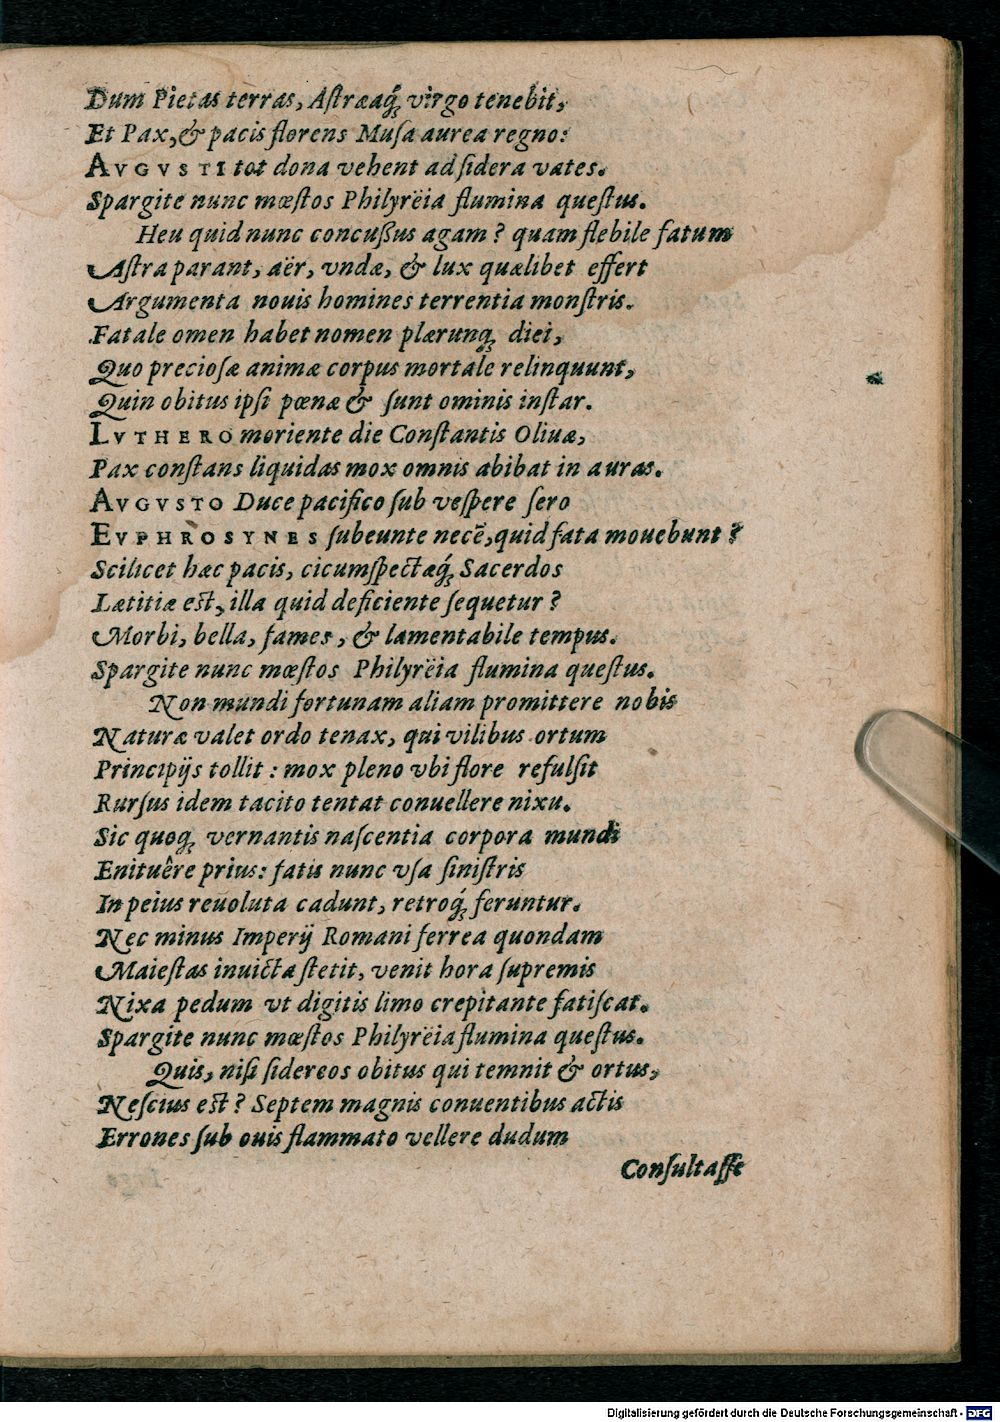 Dum Pietas terras, Aſtræaq́; virgo tenebit,
Et Pax, & pacis florens Muſa aurea regno:
AVGVSTI tot dona vehent ad ſidera vates.
Spargite nunc mœſtos Philyrëia flumina queſtus.
Heu quid nunc concuſſus agam? quam flebile fatum
Aſtra parant, aër, vndæ, & lux quælibet effert
Argumenta nouis homines terrentia monſtris.
Fatale omen habet nomen plærunq; diei,
Quo precioſæ animæ corpus mortale relinquunt,
Quin obitus ipſi pœnæ & ſunt ominis inſtar.
LVTHERO moriente die Conſtantis Oliuæ,
Pax conſtans liquidas mox omnis abibat in auras.
AVGVSTO Duce pacifico ſub veſpere ſero
EVPHROSYNES ſubeunte necē, quid fata mouebunt?
Scilicet hæc pacis, cicumſpectæq́; Sacerdos
Lætitiæ eſt, illa quid deficiente ſequetur?
Morbi, bella, fames, & lamentabile tempus.
Spargite nunc mœſtos Philyrëia flumina queſtus.
Non mundi fortunam aliam promittere nobis
Naturæ valet ordo tenax, qui vilibus ortum
Principijs tollit: mox pleno vbi flore refulſit
Rurſus idem tacito tentat conuellere nixu.
Sic quoq; vernantis naſcentia corpora mundi
Enituêre prius: fatis nunc vſa ſiniſtris
In peius reuoluta cadunt, retroq́; feruntur.
Nec minus Imperij Romani ferrea quondam
Maieſtas inuicta ſtetit, venit hora ſupremis
Nixa pedum vt digitis limo crepitante fatiſcat.
Spargite nunc mœſtos Philyrëia flumina queſtus.
Quis, niſi ſidereos obitus qui temnit & ortus,
Neſcius eſt? Septem magnis conuentibus actis
Errones ſub ouis flammato vellere dudum
Conſultaſſe
Digitalisierung gefördert durch die Deutsche Forschungsgemeinschaft - DFG